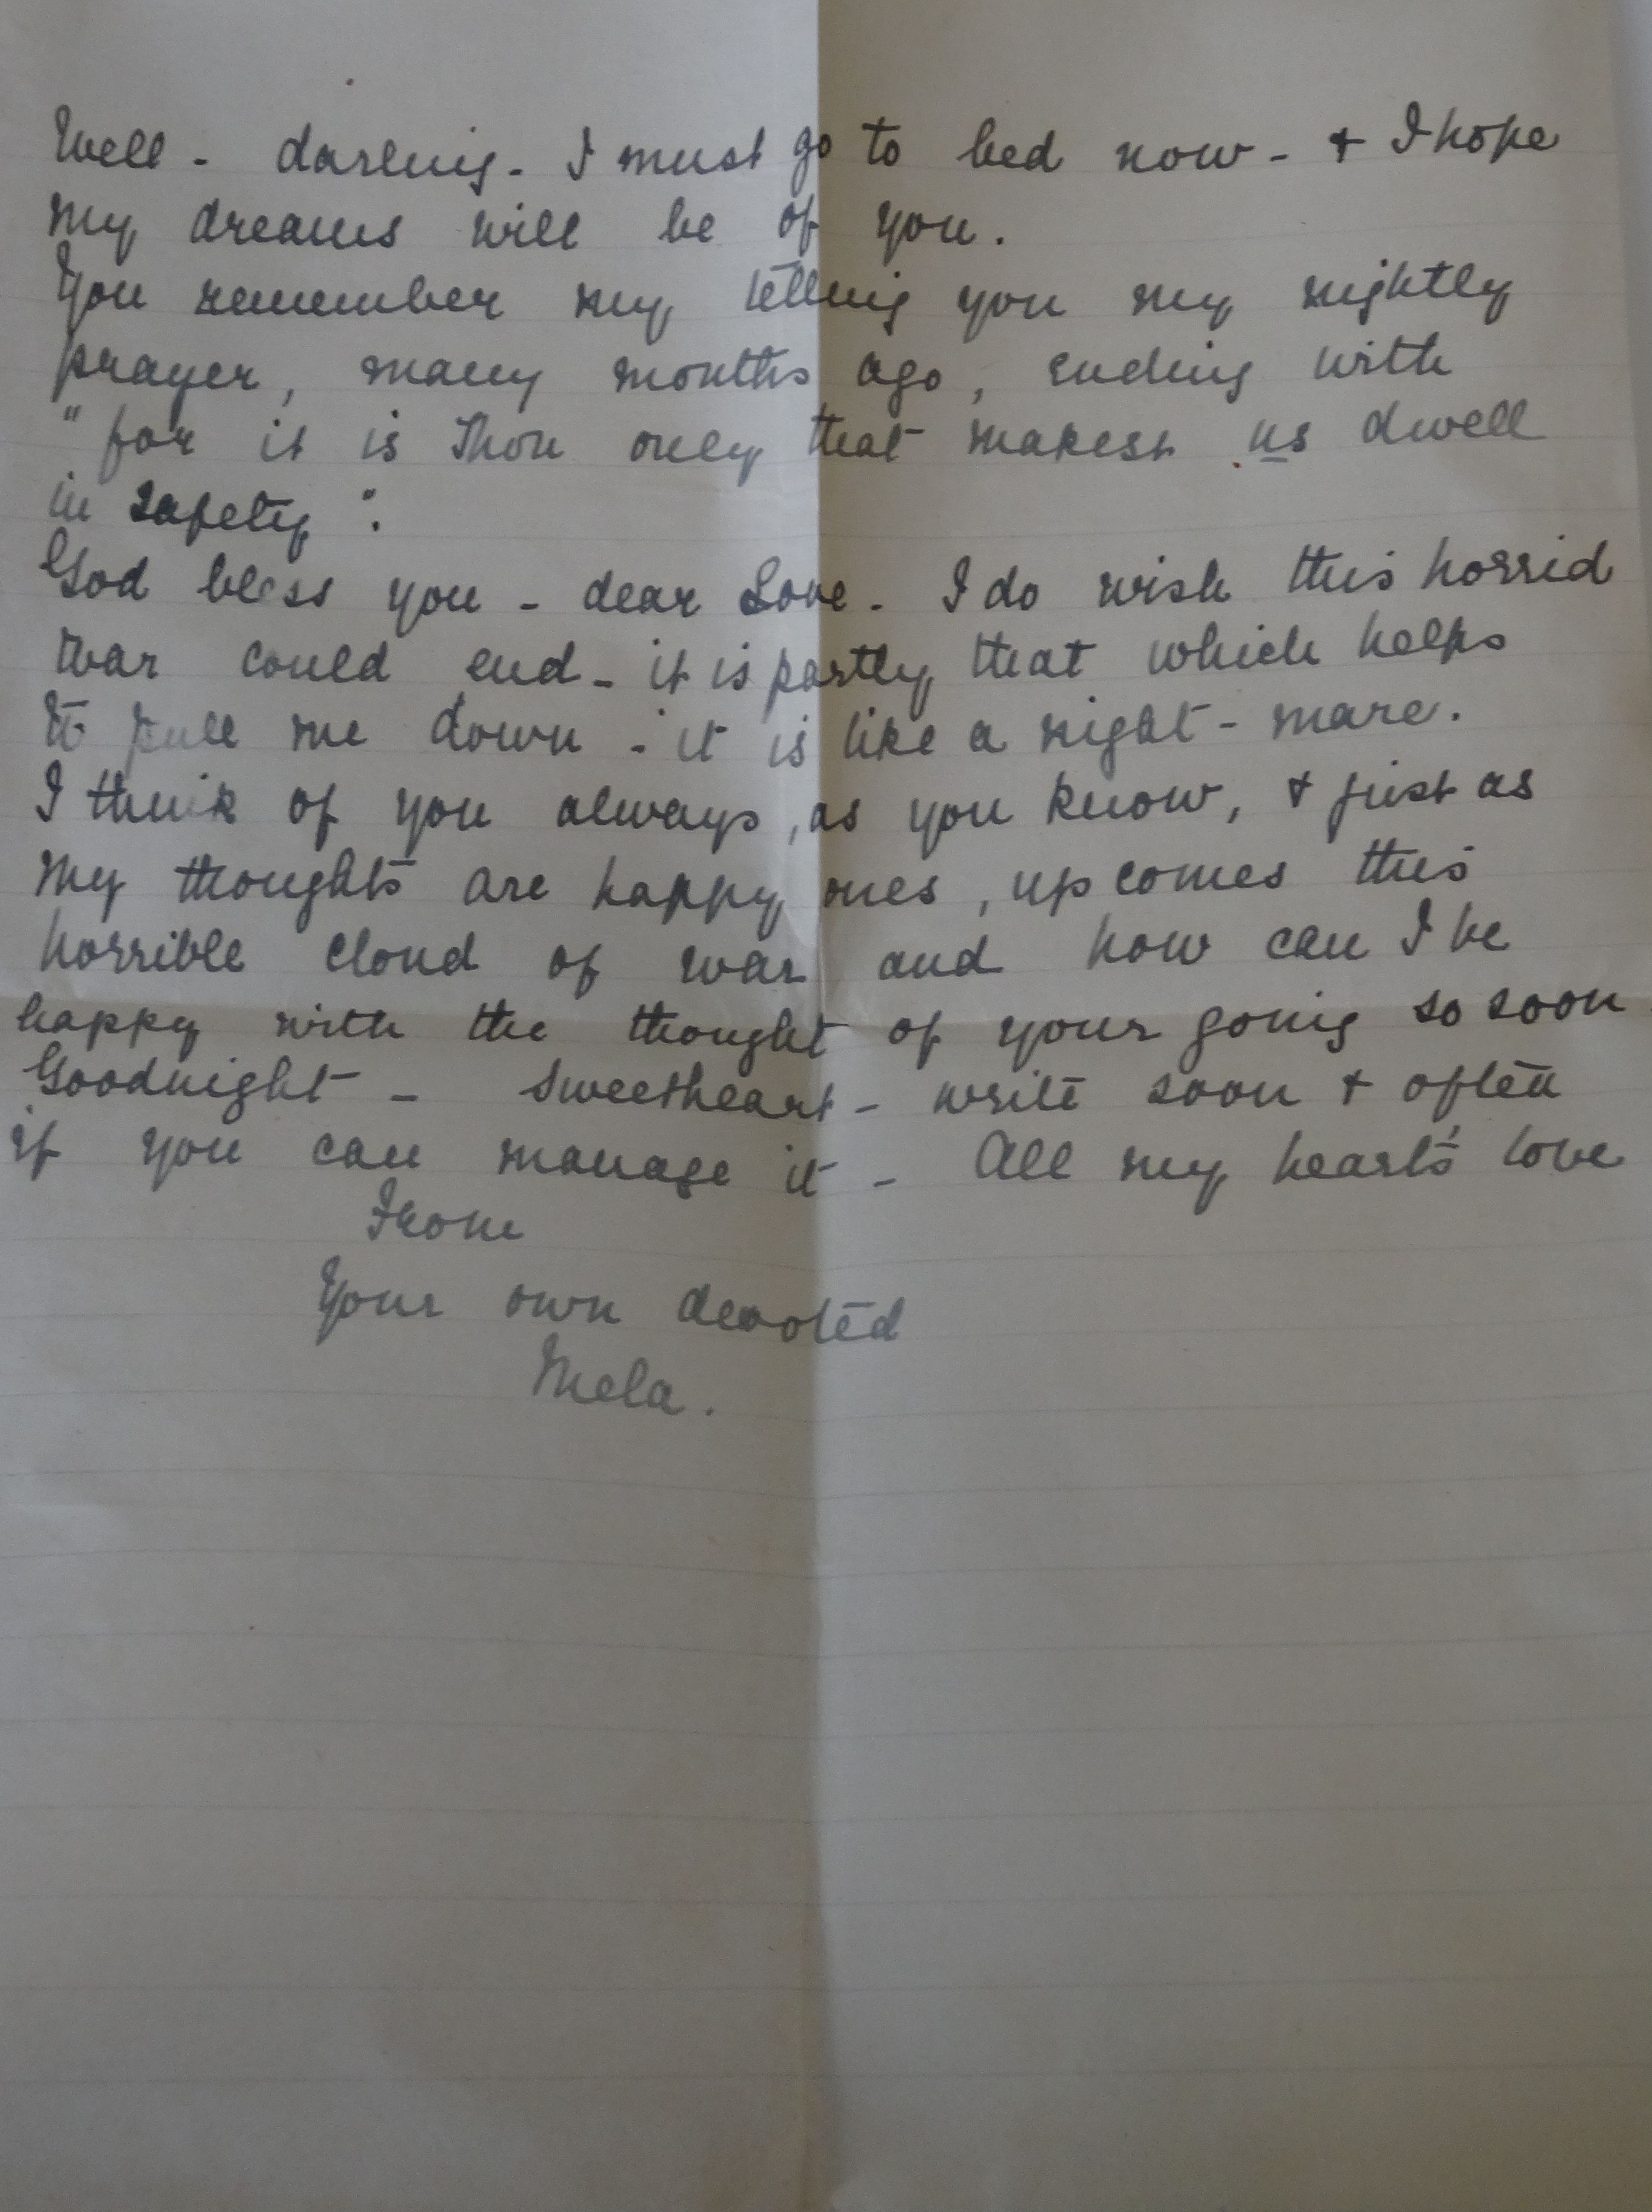 Well - darling - I must go to bed now - & I hope
my dreams will be of you.
You remember my telling you my nightly
prayer, many months ago, ending with
"for it is Thou only that makest us dwell
in safety".
God bless you - dear Love - I do wish this horrid
war could end - it is partly that which helps
to pull me down - it is like a night-mare.
I think of you always, as you know, & just as
my thoughts are happy ones, up comes this
horrible cloud of war and how can I be
happy with the thought of your going so soon
Goodnight - Sweetheart - write soon & often
if you can manage it - All my heart's love
From
Your own devoted
Mela.